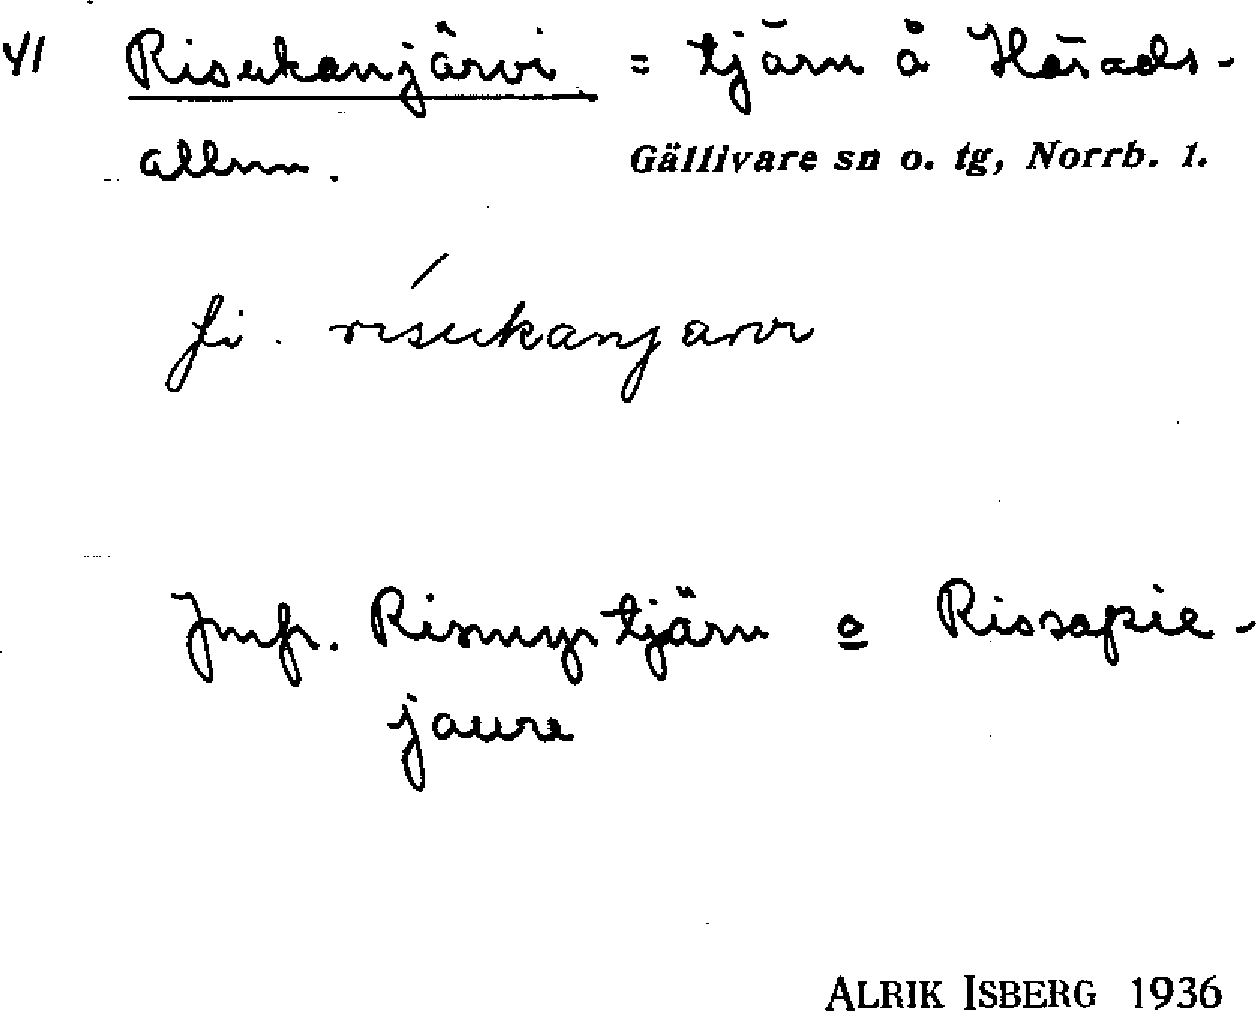 41 Risukanjärvi = tjärn å Härads-
allm. Gällivare sn o. tg, Norrb. l.
fi. risukanjarvi
Jmfr. Rismyrtjärn o Rissapie-
jaure
ALRIK ISBERG 1936